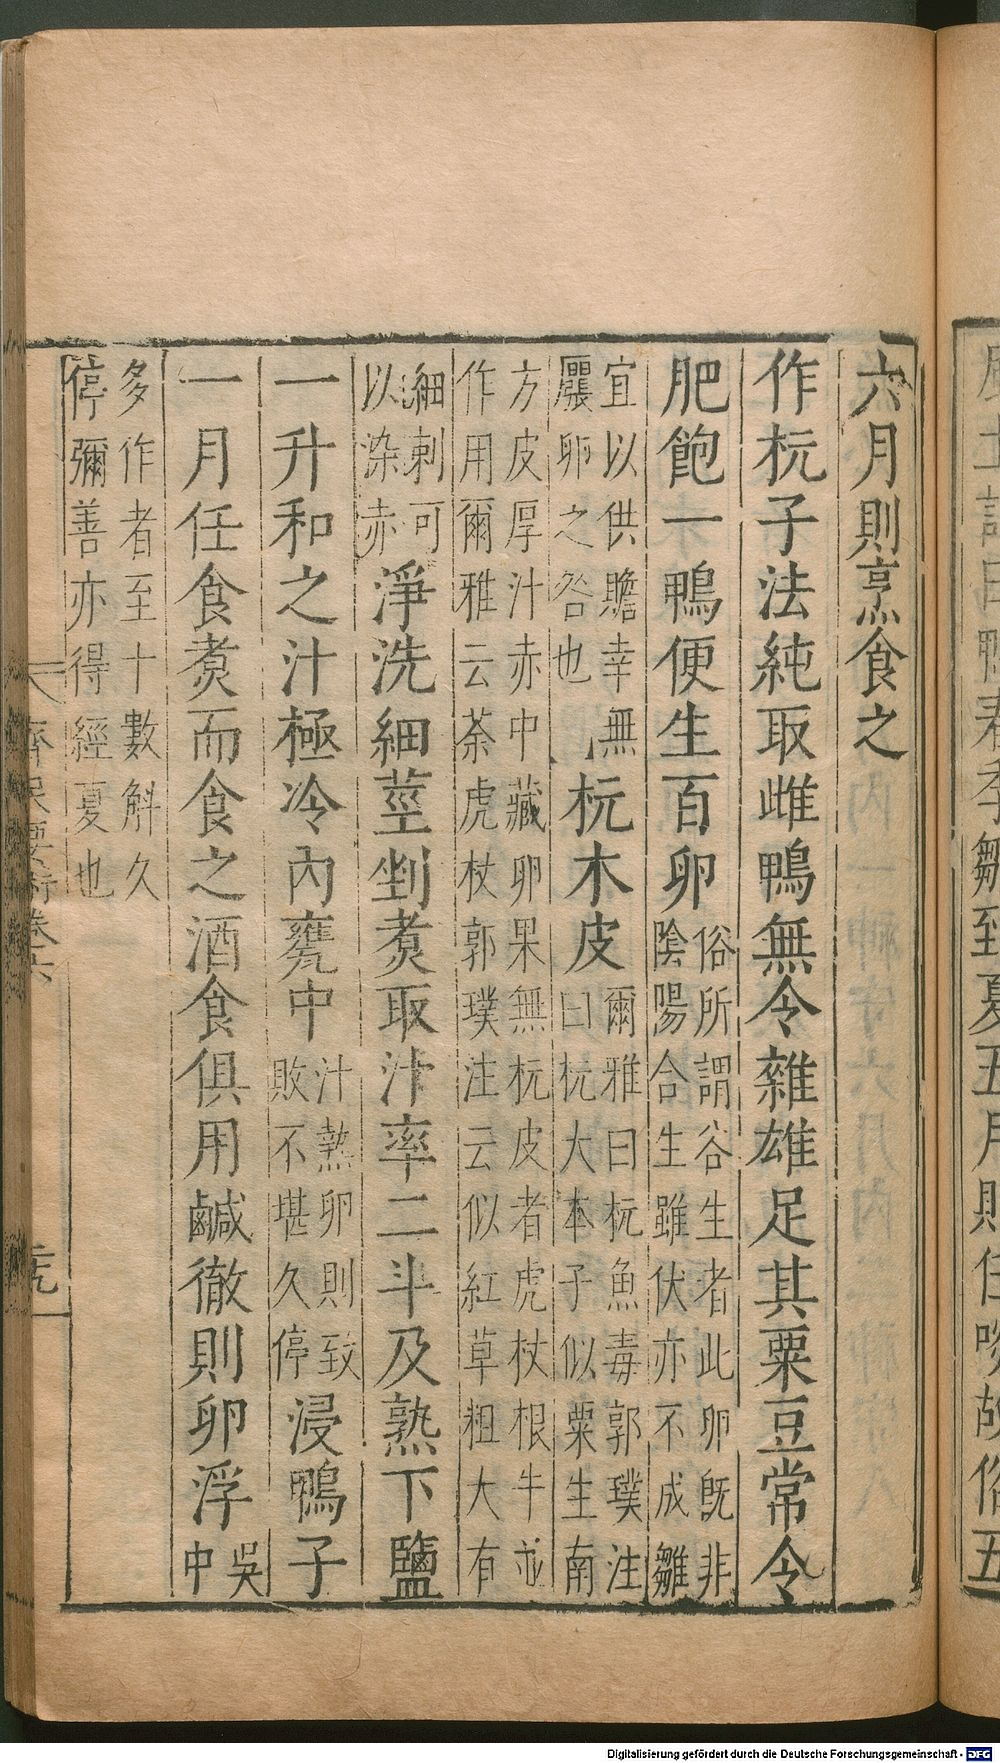 六月則烹食之
作杬子法純取雌鴨無令雜雄足其粟豆常令
肥飽一鴨便生百卵俗所謂谷生者此卵既非陰陽合生雖伏亦不成雛
宜以供膳幸無麛卵之咎也杬木皮爾雅曰杬魚毒郭璞注曰杬大本子似粟生南
方皮厚汁赤中藏卵果無杬皮者虎杖根牛並作用爾雅云荼虎杖郭璞注云似紅草粗大有
細剌可以染赤淨洗細莖剉煑取汁率二斗及熟下鹽
一升和之汁極冷內甕中汁𤍠卵則致敗不堪久停浸鴨子
一月任食煑而食之酒食俱用鹹徹則卵浮吳中
多作者至十數斛久停彌善亦得經夏也
齊民要術卷六